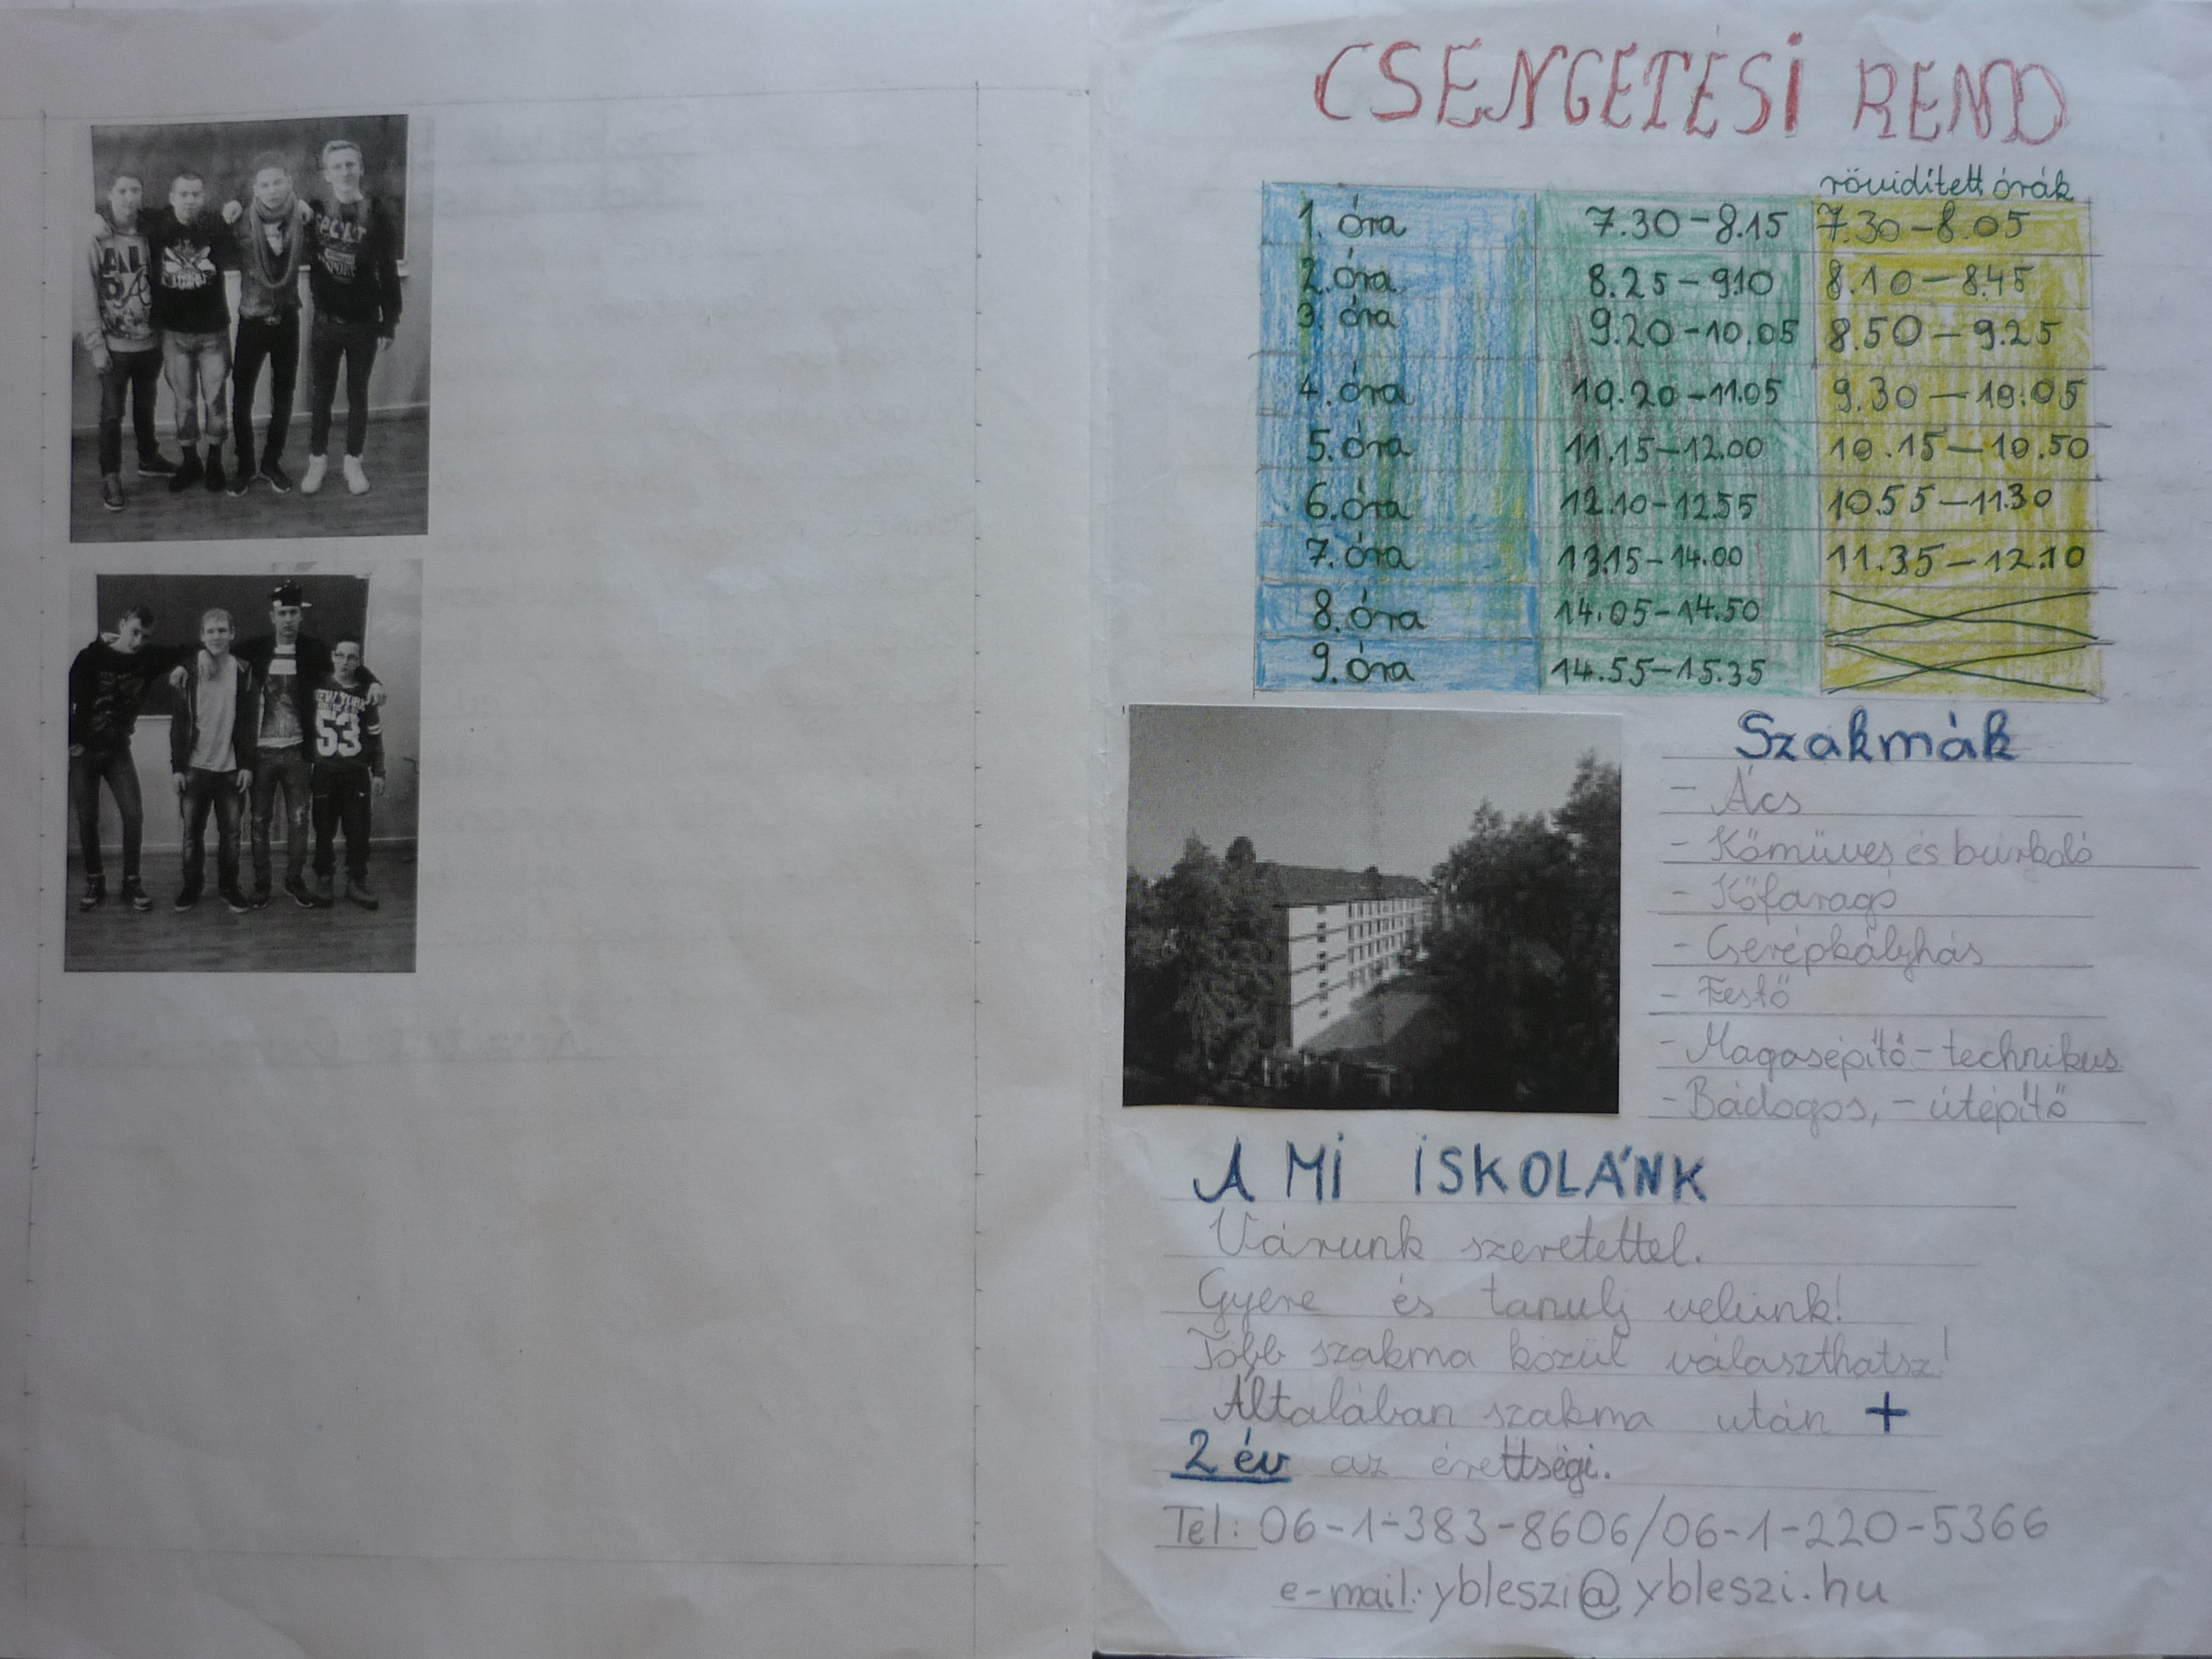 CSENGETÉSI REND
rövidített órák
1. óra 7.30-8.15 7.30-8.05
2. óra 8.25-910 8.10-8.45
3. óra 9.20-10.05 8.50-9.25
4. óra 10.20-11.05 9.30-10.05
5. óra 11.15-12.00 10.15-10.50
6. óra 12.10-1255 10.55-11.30
7. óra 13.15-14.00 11.35-12.10
8. óra 14.05-14.50
9. óra 14.55-15.35
NEW YORK
53
Szakmák
- Ács
- Kőműves és burkoló
- Kőfaragó
- Cserépkályhás
- Festő
- Magasépítő-technikus
- Bádogos, - útépítő
A MI ISKOLÁNK
Várunk szeretettel.
Gyere és tanulj velünk!
Több szakma közül választhatsz!
Általában szakma után +
2 év az érettségi.
Tel: 06-1-383-8606/06-1-220-5366
e-mail: ybleszi@ybleszi.hu